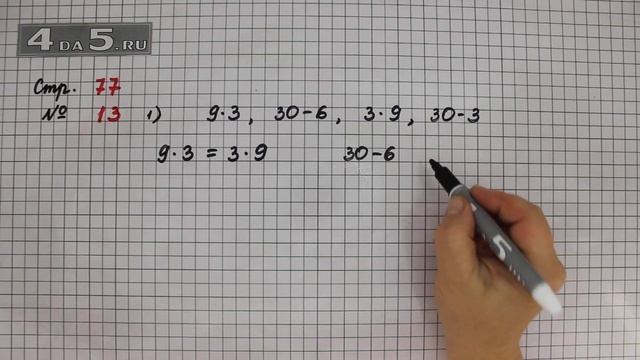 4 DA 5.RU
Стр. 77
№ 13 1) 9·3, 30-6, 3·9, 30-3
9·3 = 3·9 30-6
5